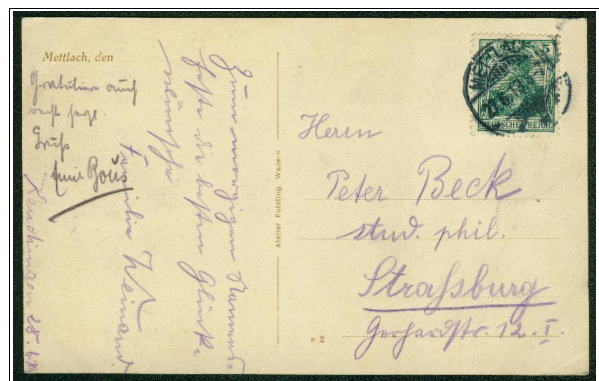 Mettlach, den
Gratuliere auch
recht herzl.
Gruß
Emil Bous
Zum morgigen Namens-
feste die besten Glück-
wünsche
Familie Weinand
Atelier Fuisting, Wadern
METTLACH
5
DEUTSCHES REICH
Herrn
Peter Beck
stud. phil.
Straßburg
Gerhardstr. 12. I.